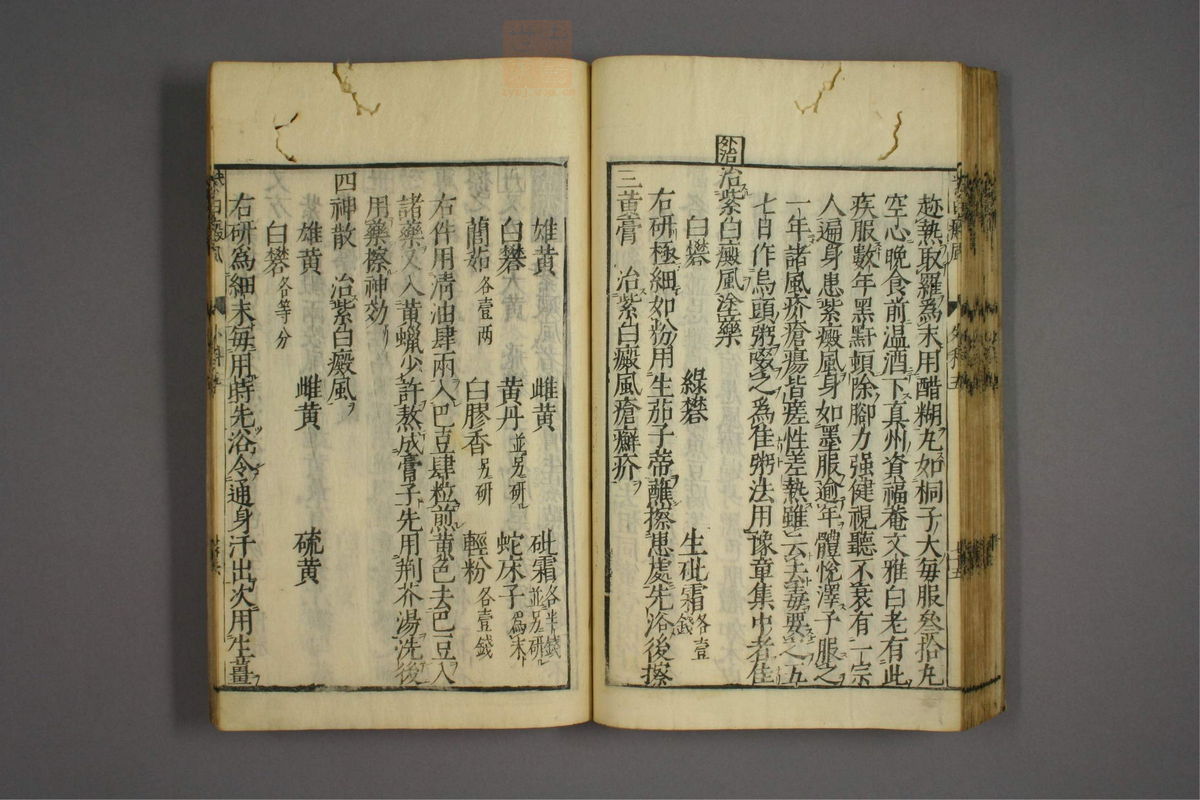 趂熱取羅爲末用醋糊丸如桐子大每服叄拾丸
空心晚食前溫酒下真州資福菴文雅白老有此
疾服數年黑䵟頓除腳力强健視聽不衰有一宗
人遍身患紫癜風身如墨服逾年體悅澤予服之
一年諸風疥瘡瘍皆瘥性差熱雖云去毒要之五
七日作烏頭粥啜之爲佳粥法用豫章集中者佳
外治 治紫白癜風塗藥
白礬 綠礬 生砒霜各壹錢
右研極細如粉用生茄子蒂蘸擦患處先浴後擦
三黃膏 治紫白癜風瘡癬疥
雄黃 雌黃 砒霜各半錢並另研
白礬 黃丹並另研 蛇床子爲末
䕡茹各壹两 白膠香另研 輕粉各壹錢
右件用清油肆兩入巴豆肆粒煎黃色去巴豆入
諸藥又入黃蠟少許熬成膏子先用荆芥湯洗後
用藥擦神効
四神散 治紫白癜風
雄黃 雌黃 硫黃
白礬各等分
右研爲細末每用時先浴令通身汗出次用生薑